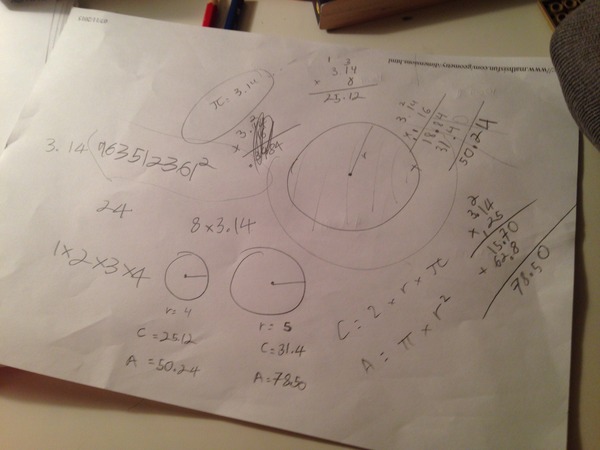 //www.mathsisfun.com/geometry/dimensions.html
π = 3.14
1 3
3.14
× 8
25.12
3.14 (763512361²
24
8 × 3.14
1 × 2 × 3 × 4
r = 4
C = 25.12
A = 50.24
r = 5
C = 31.4
A = 78.50
r
2
3.14
× 16
18.84
31.40
50.24
2
3.14
× 25
15.70
+ 62.8
78.50
C = 2 × r × π
A = π × r²